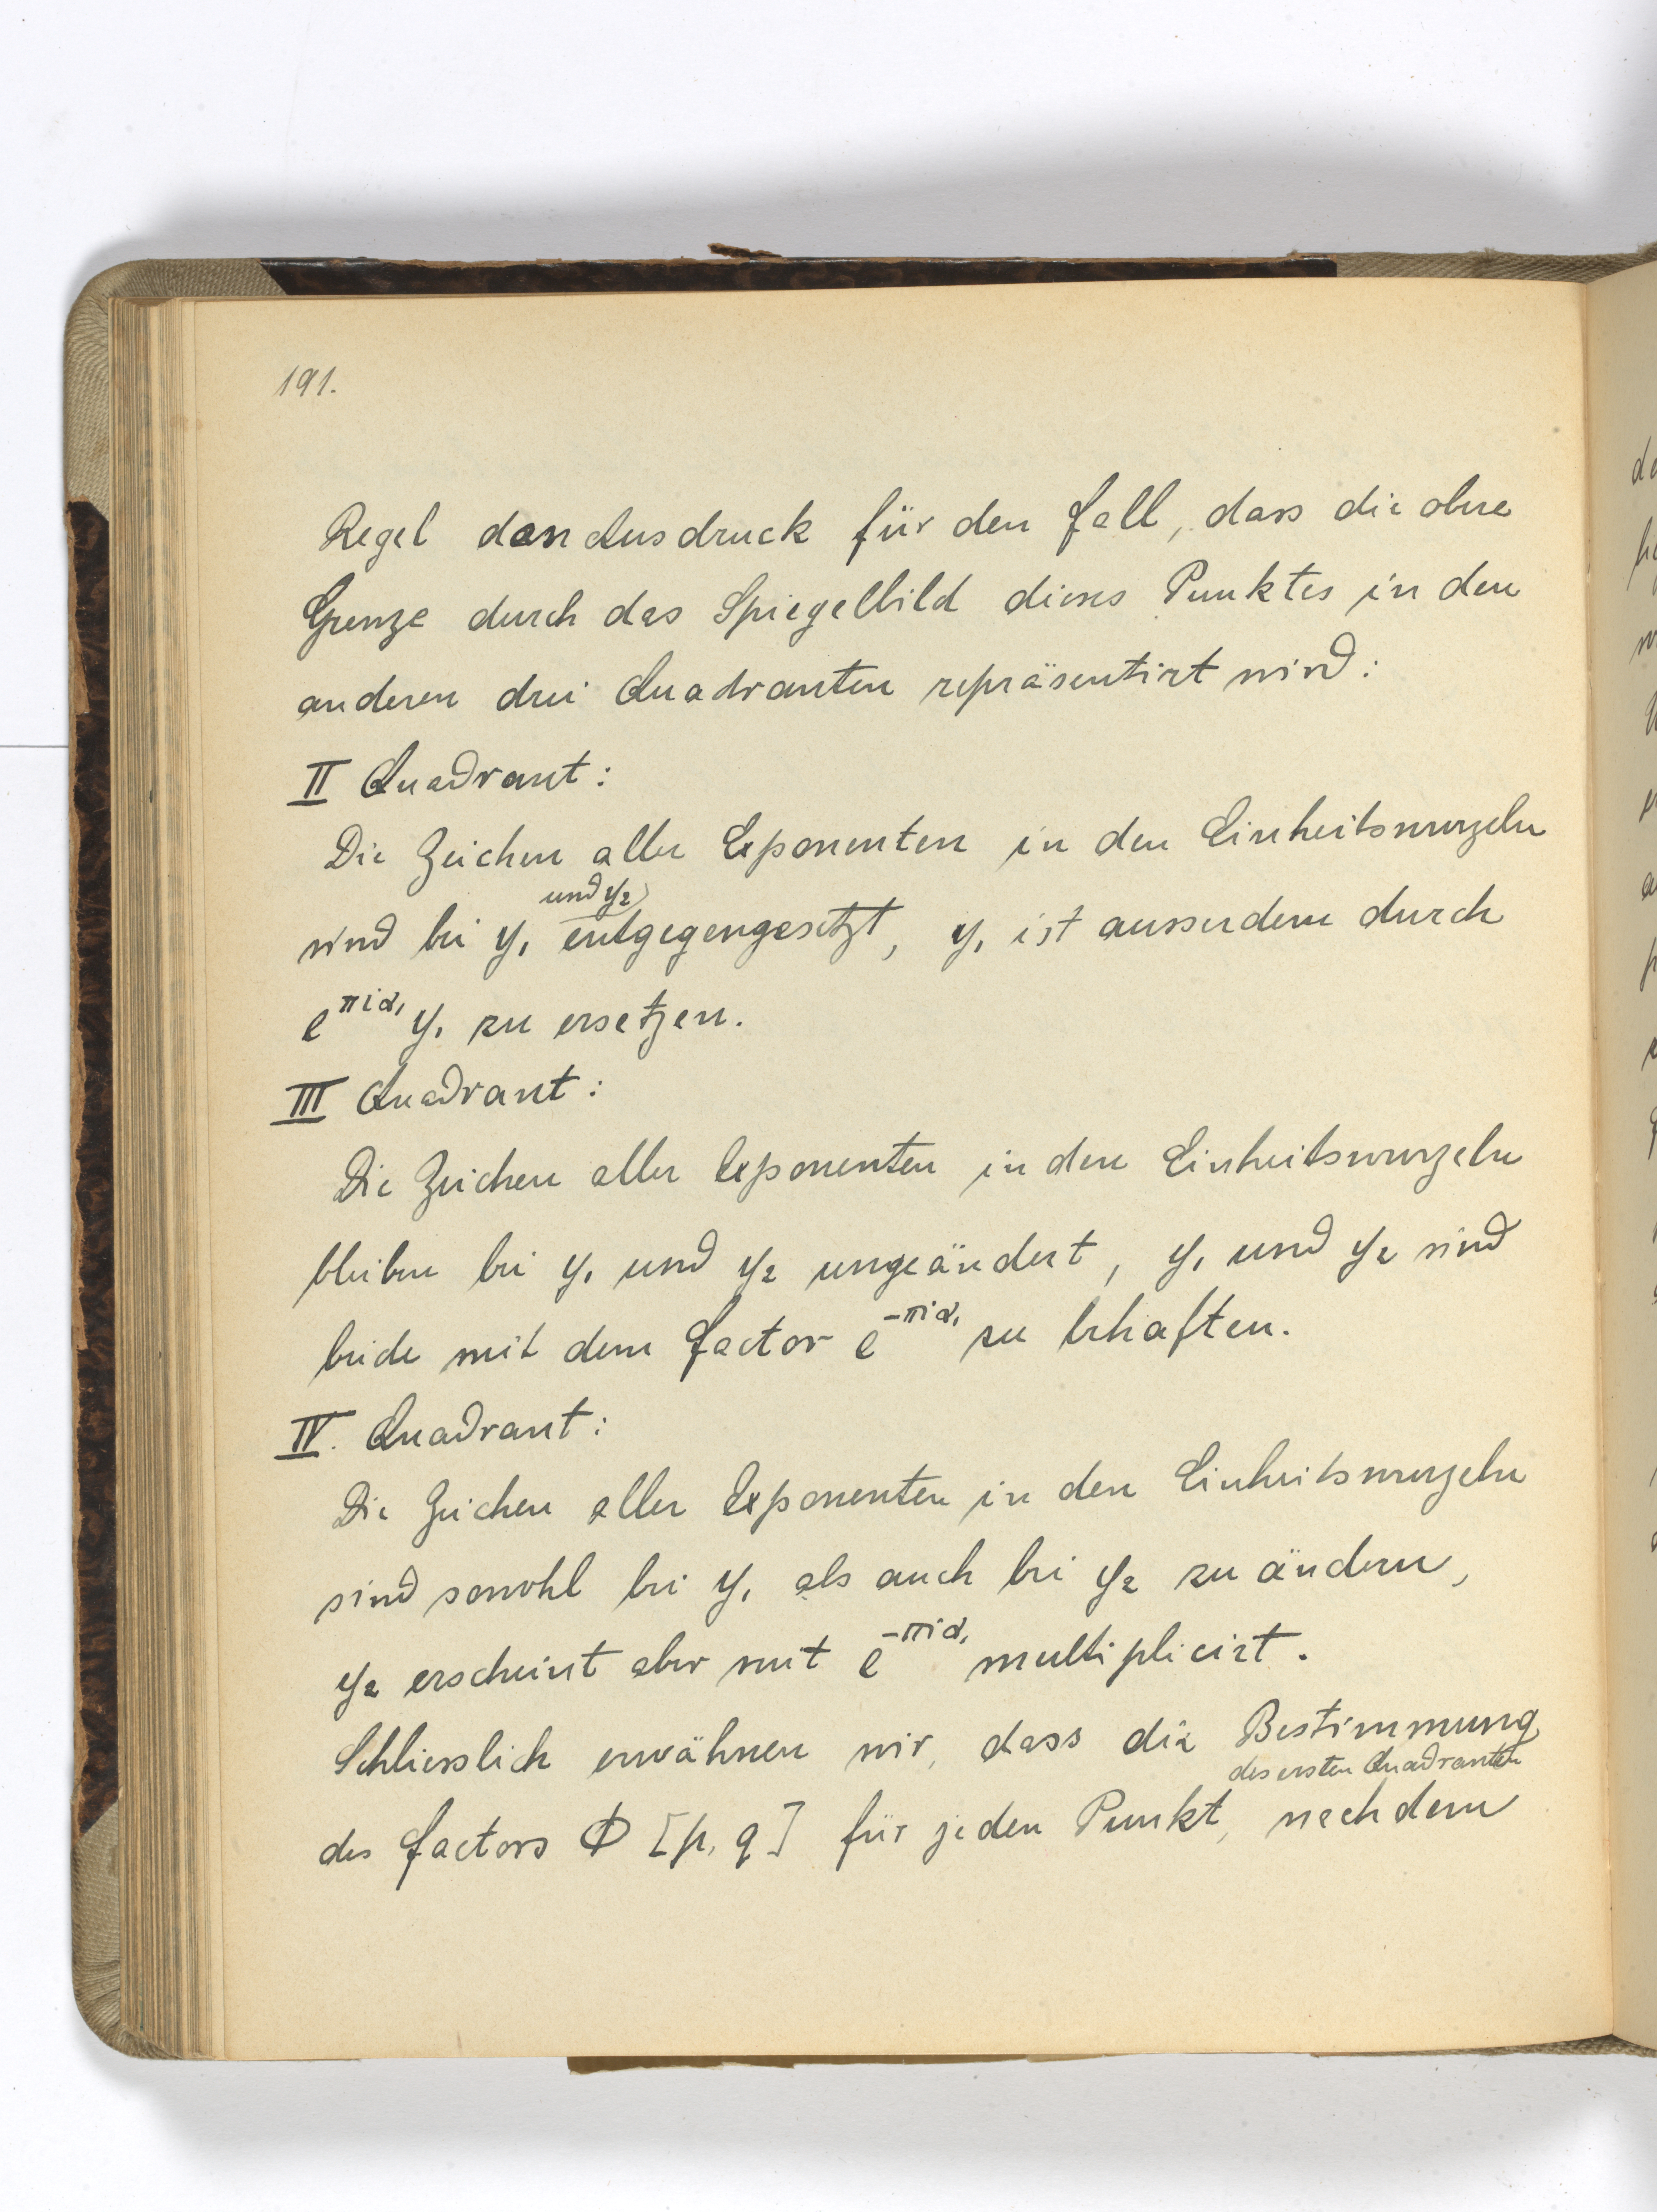 191.
Regel den Ausdruck für den Fall, dass die obere
Grenze durch das Spiegelbild dieses Punktes in den
anderen drei Quadranten repräsentirt wird:
II Quadrant:
Die Zeichen aller Exponenten in den Einheitswurzeln
und y₂
sind bei y₁ entgegengesetzt, y₁ ist ausserdem durch
e^{πiα₁} y₁ zu ersetzen.
III Quadrant:
Die Zeichen aller Exponenten in den Einheitswurzeln
bleiben bei y₁ und y₂ ungeändert, y₁ und y₂ sind
beide mit dem Factor e^{-πiα₁} zu behaften.
IV. Quadrant:
Die Zeichen aller Exponenten in den Einheitswurzeln
sind sowohl bei y₁ als auch bei y₂ zu ändern,
y₂ erscheint aber mit e^{-πiα₁} multiplicirt.
Schliesslich erwähnen wir, dass die Bestimmung
des ersten Quadranten
des Factors Φ [p, q] für jeden Punkt, nachdem